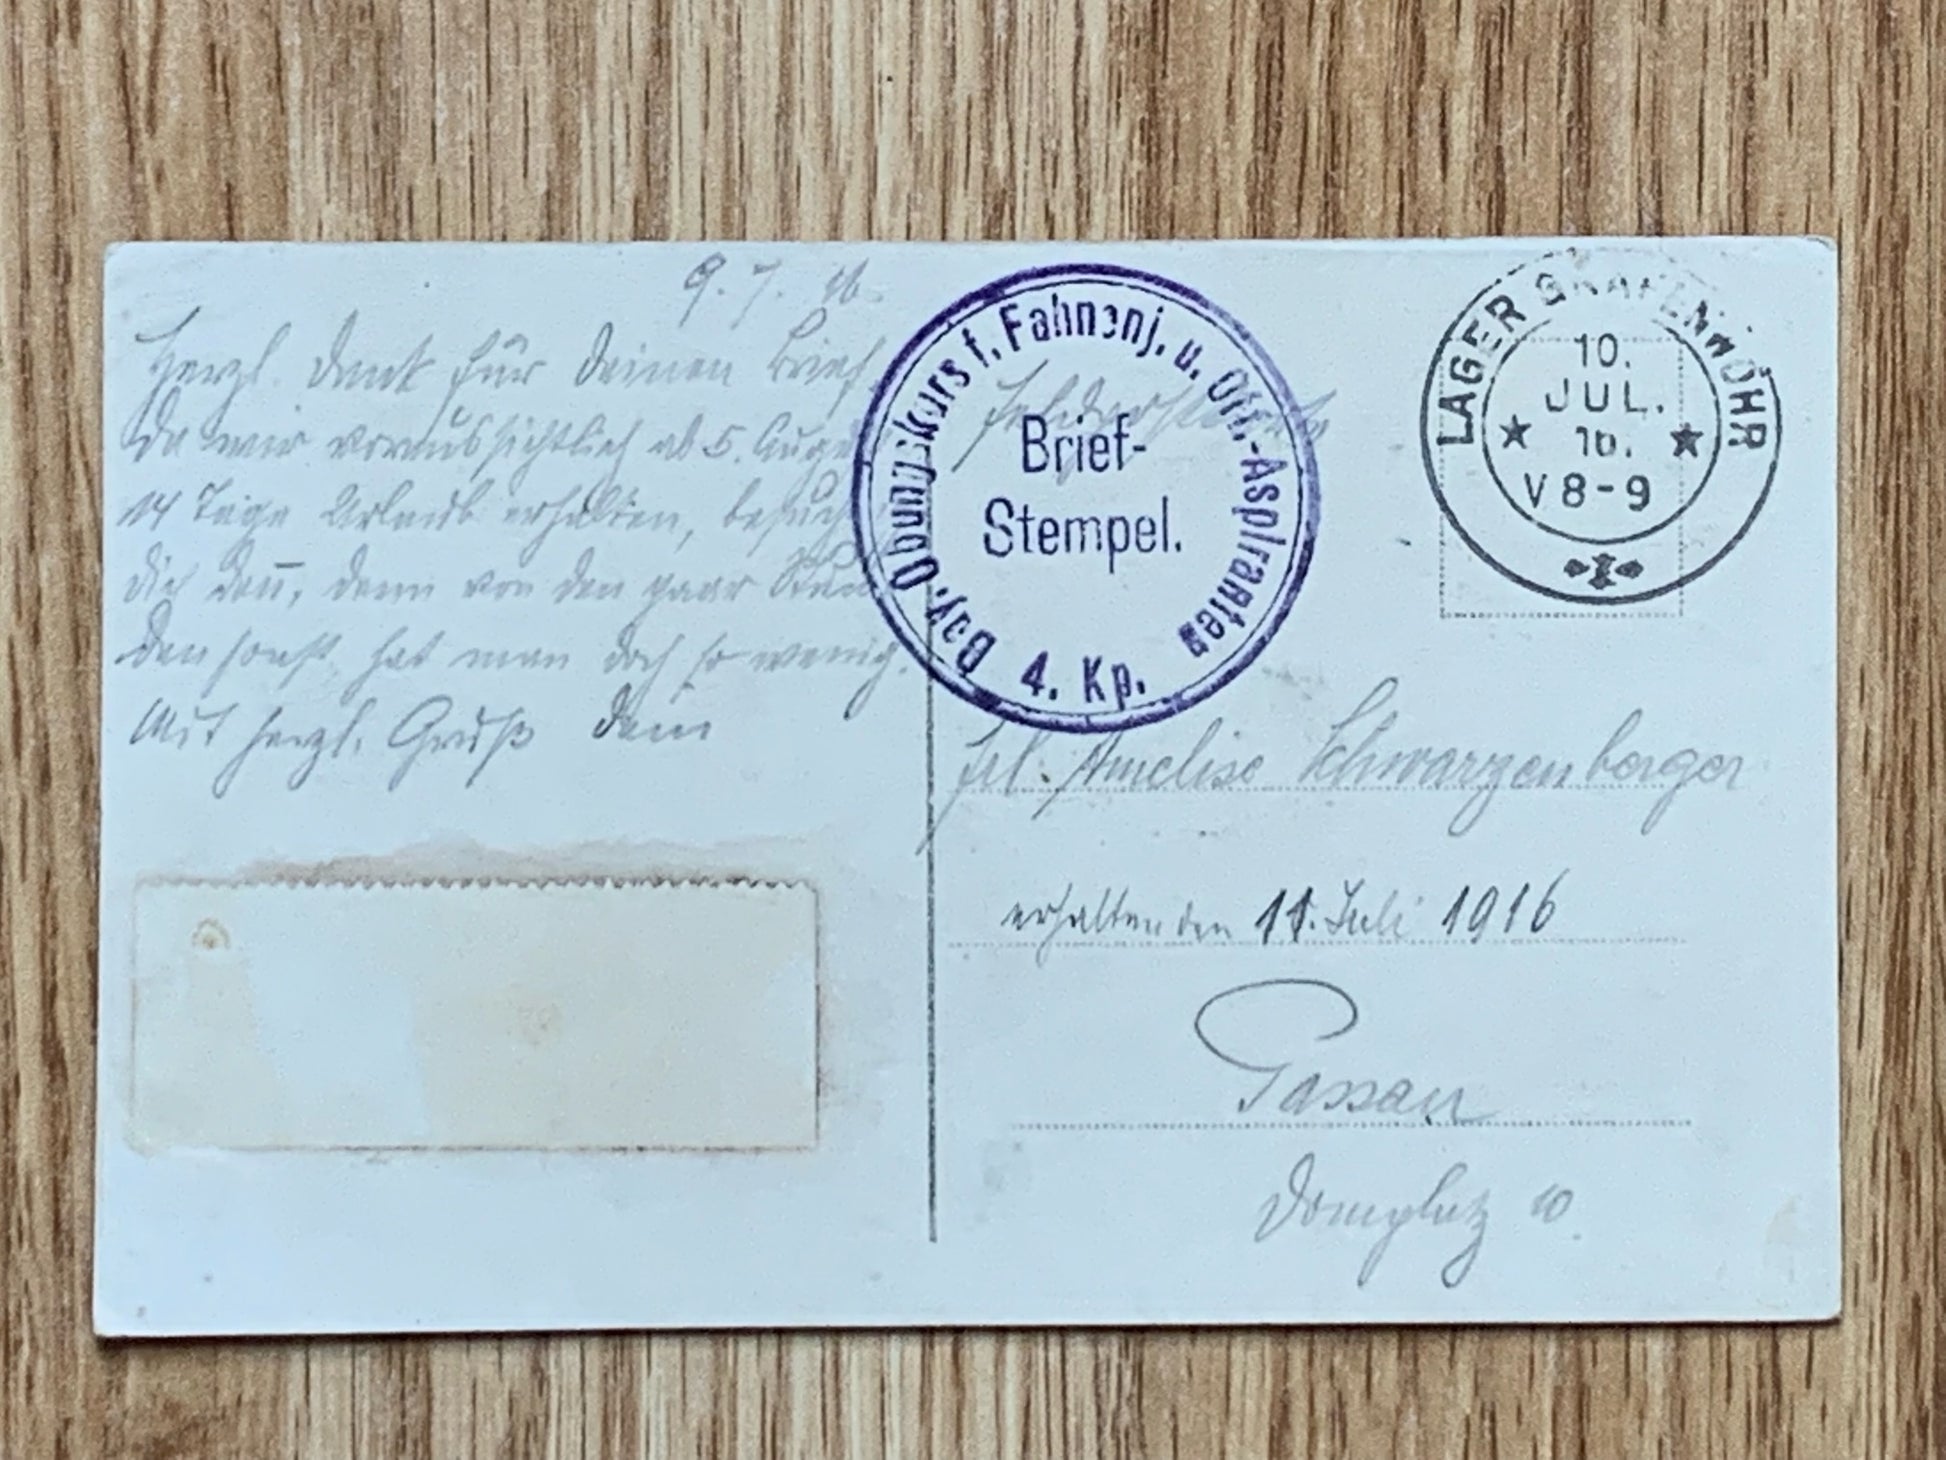 9. 7. 16.
Herzl. Dank für Deinen Brief.
Da wir voraussichtlich ab 5. Aug.
14 Tage Urlaub erhalten, besuche
Dich dañ, denn von den paar Stun-
den sonst hat man doch so wenig.
Mit herzl. Gruß Dein
Bay. Übungskurs f. Fahnenj. u. Off.-Aspiranten
Brief-
Stempel.
4. Kp.
LAGER GRAFENWÖHR
10.
JUL.
16.
V 8-9
Frl. Amelise Schwarzenberger
erhalten den 11. Juli 1916
Passau
Domplatz 10.